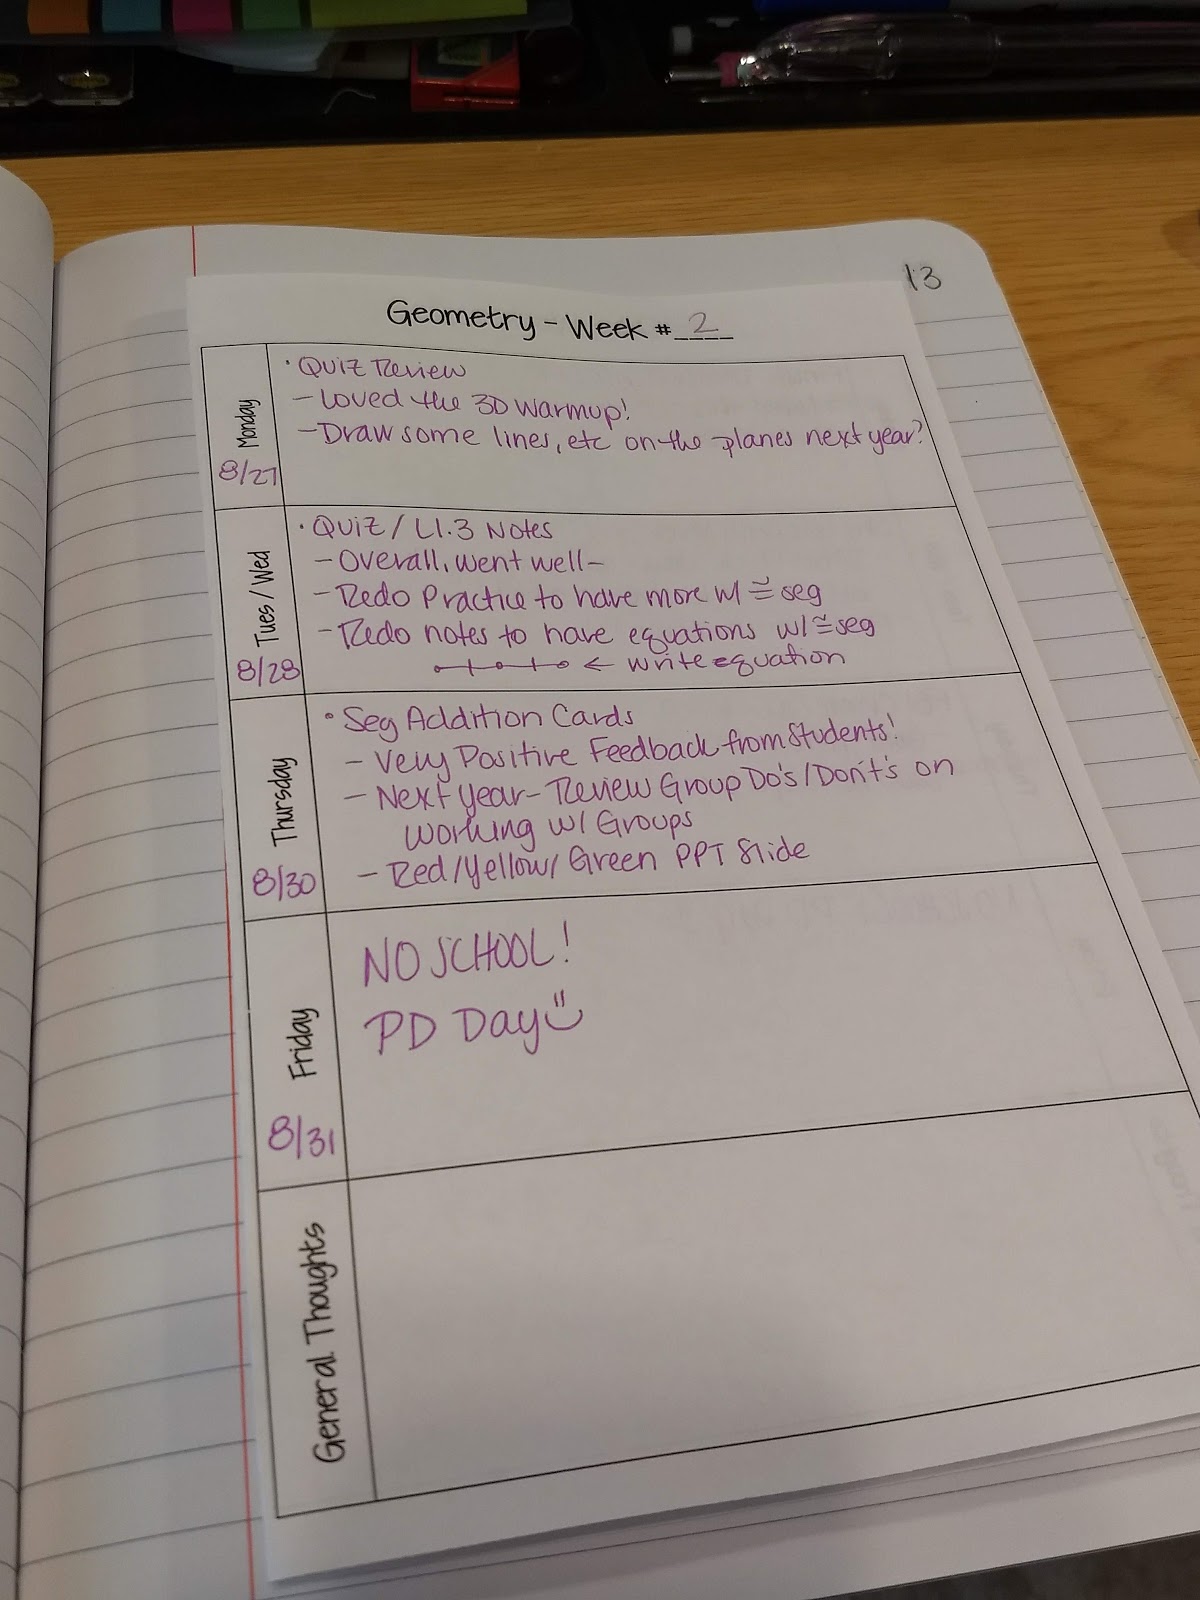 13
Geometry - Week # 2
Monday
8/27
· Quiz Review
- Loved the 3D warmup!
- Draw some lines, etc on the planes next year?
Tues / Wed
8/28
· Quiz / L1.3 Notes
- Overall, went well-
- Redo Practice to have more w/ ≅ seg
- Redo notes to have equations w/ ≅ seg
← write equation
Thursday
8/30
· Seg Addition Cards
- Very Positive Feedback from Students!
- Next year- Review Group Do's/Don't's on
working w/ Groups
- Red/Yellow/Green PPT Slide
Friday
8/31
NO SCHOOL!
PD Day
General Thoughts